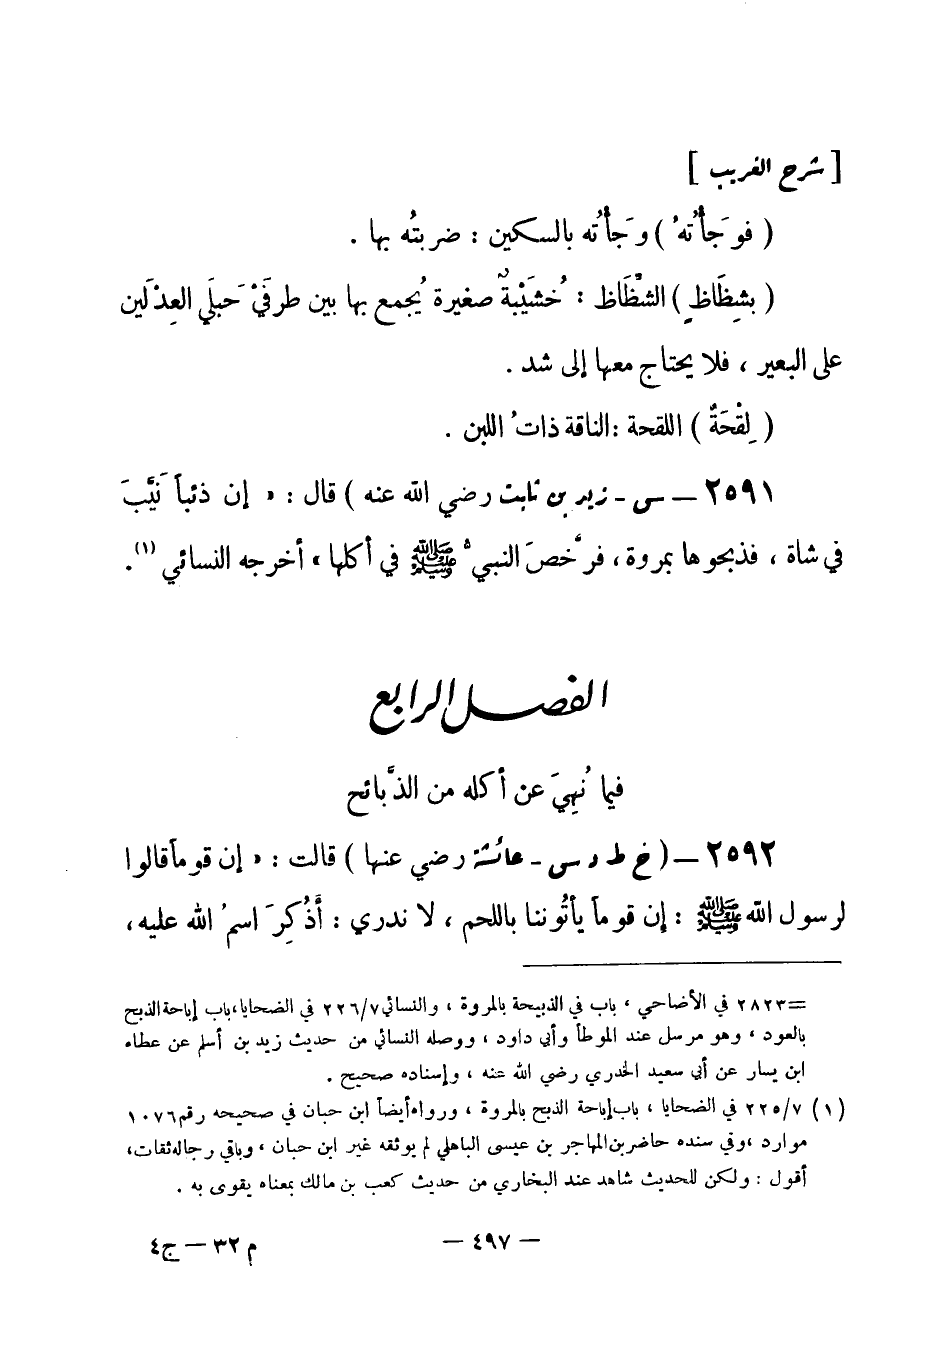 [ شرح الغريب ]
( فوَجَأْتُهُ ) وَجَأْتُه بالسكين : ضربتُه بها .
( بشِظَاظٍ ) الشِّظَاظ : خُشَيْبَةٌ صغيرة يُجمع بها بين طرفَيْ حَبلَي العِدْلَين
على البعير ، فلا يحتاج معها إلى شد .
( لِقْحَةٌ ) اللقحة : الناقة ذاتُ اللبن .
٢٥٩١ — س - زيد بن ثابت رضي الله عنه ) قال : « إن ذئباً نَيَّبَ
في شاة ، فذبحوها بمروة ، فرخَّصَ النبيُّ ﷺ في أكلها » أخرجه النسائي (١) .
الفصل الرابع
فيما نُهِيَ عن أكله من الذَّبائح
٢٥٩٢ — ( خ ط د س - عائشة رضي عنها ) قالت : « إن قوماً قالوا
لرسول الله ﷺ : إن قوماً يأتُوننا باللحم ، لا ندري : أَذُكِرَ اسمُ الله عليه ،
= ٢٨٢٣ في الأضاحي ، باب في الذبيحة بالمروة ، والنسائي ٢٢٦/٧ في الضحايا ، باب إباحة الذبح
بالعود ، وهو مرسل عند الموطأ وأبي داود ، ووصله النسائي من حديث زيد بن أسلم عن عطاء
ابن يسار عن أبي سعيد الخدري رضي الله عنه ، وإسناده صحيح .
(١) ٢٢٥/٧ في الضحايا ، باب إباحة الذبح بالمروة ، ورواه أيضاً ابن حبان في صحيحه رقم ١٠٧٦
موارد ، وفي سنده حاضر بن المهاجر بن عيسى الباهلي لم يوثقه غير ابن حبان ، وباقي رجاله ثقات ،
أقول : ولكن للحديث شاهد عند البخاري من حديث كعب بن مالك بمعناه يقوى به .
— ٤٩٧ —
م ٣٢ — ج ٤